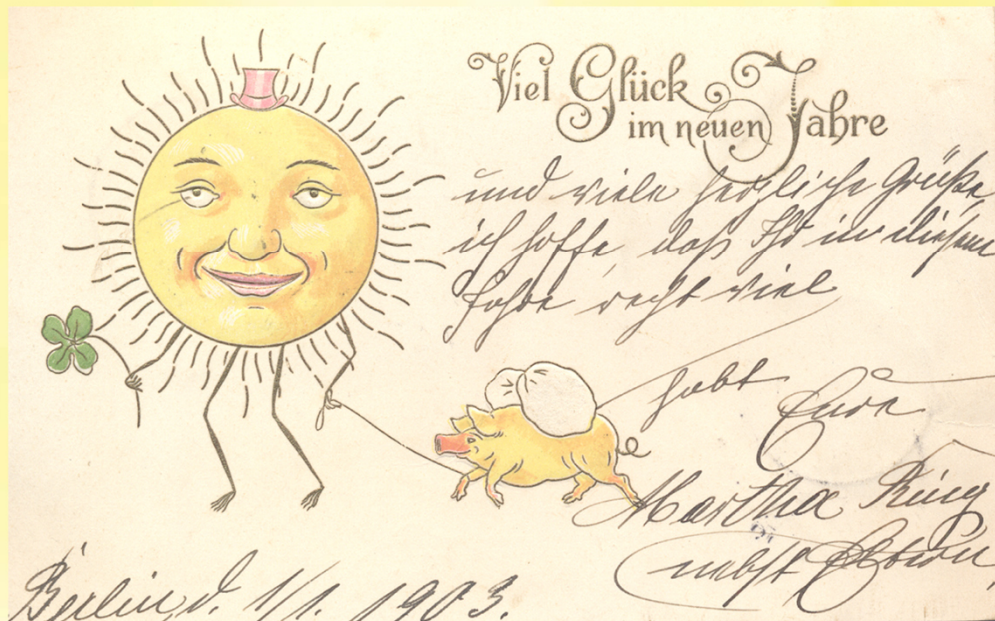 Viel Glück
im neuen Jahre
und viele herzliche Grüße
ich hoffe, daß Ihr in diesem
Jahre recht viel
habt
Eure
Martha Ring
nebst Eltern
Berlin, d. 1/1. 1903.